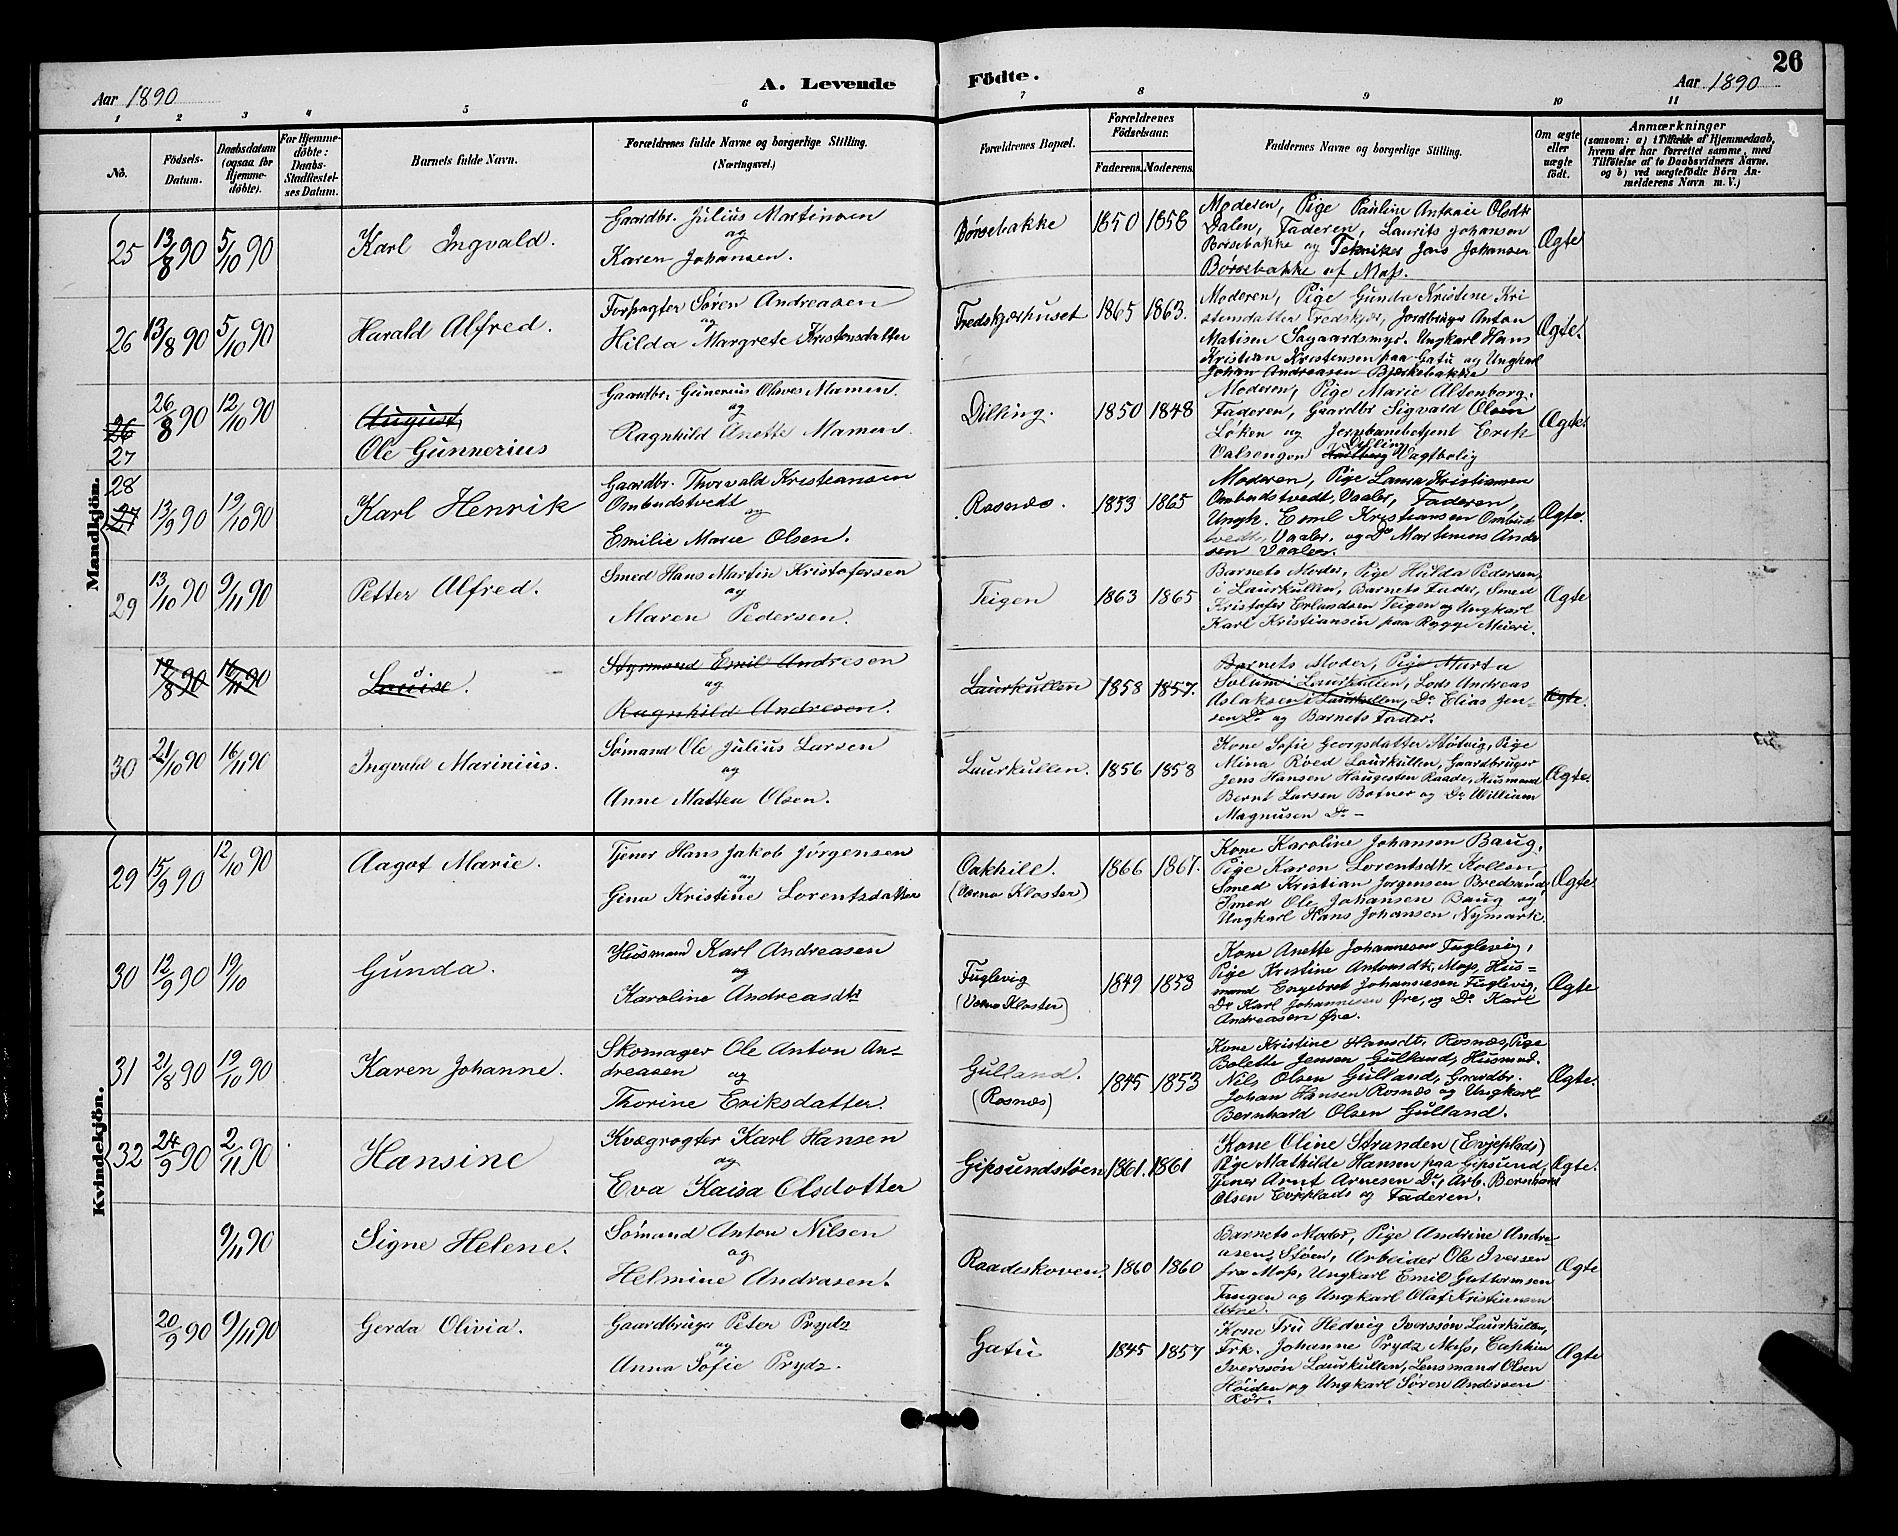 26
Aar 1890
A. Levende Födte.
Aar 1890
1 2 3 4 5 6 7 8 9 10 11
No.
Födsels-Datum.
Daabsdatum (ogsaa for Hjemme-döbte).
For Hjemme-döbte: Daabs-Stadfæstel-ses Datum.
Barnets fulde Navn.
Forældrenes fulde Navne og borgerlige Stilling. (Næringsvei.)
Forældrenes Bopæl.
Forældrenes Födselsaar.
Faderens. Moderens.
Faddernes Navne og borgerlige Stilling.
Om ægte eller uægte födt.
Anmærkninger
(saasom: a) i Tilfælde af Hjemmedaab, hvem der har forrettet samme, med Tilföielse af to Daabsvidners Navne, og b) ved uægtefödte Börn An-melderens Navn m. V.)
Mandkjön.
25 13/8 90 5/10 90 Karl Ingvald.
Gaardbr. Julius Martinsen
og
Karen Johansen.
Børsebakke 1850 1858
Moderen, Pige Pauline Antonie Olsdtr
Dalen, Faderen, Laurits Johansen
Børsebakke og Tekniker Jens Johansen
Børsebakke af Moss.
Ægte
26 13/8 90 5/10 90 Harald Alfred.
Forpagter Søren Andreasen
og
Hilda Margrete Kristensdatter
Fredskjærhuset 1865 1863.
Moderen, Pige Gunda Kristine Kri
stensdatter Fredskjær, Jordbruger Anton
Matisen Sagaardsmyr. Ungkarl Hans
Kristian Kristensen paa Gatu og Ungkarl
Johan Andreasen Bjerkebakke
Ægte.
26
27 26/8 90 12/10 90 August
Ole Gunnerius
Gaardbr. Gunerius Olsves Mamen.
og
Ragnhild Anette Mamen.
Dilling. 1850 1848
Moderen, Pige Marie Altenborg.
Faderen, Gaardbr Sigvard Olsen
Løken og Jernbanebetjent Erik
Valsengen Dilling Vagtbolig
Ægte.
28
27 13/9 90 19/10 90 Karl Henrik
Gaardbr. Thorvald Kristiansen
Ombudstvedt
og
Emilie Marie Olsen.
Rosnæs. 1853 1865
Moderen, Pige Laura Kristiansen
Ombudstvedt, Vaaler, Faderen,
Ungk. Emil Kristiansen Ombud
tvedt, Vaaler, og Do Martinius Ande
sen Vaaler.
Ægte.
29 13/10 90 9/11 90 Petter Alfred.
Smed Hans Martin Kristofersen
og
Maren Pedersen.
Teigen 1863 1865
Barnets Moder, Pige Hulda Pedersen,
i Laurkullen, Barnets Fader, Smed
Kristofer Erlundsen Teigen og Ungkarl
Karl Kristiansen paa Rygge Meieri.
Ægte
17/8 90 16/11 90 Louise.
Styrmand Emil Andresen
og
Ragnhild Andresen.
Laurkullen 1858 1857.
Barnets Moder, Pige Marta
Solum i Laurkullen, Lods Andreas
Aslaksen i Laurkullen, Do Elias Jen-
sen Do og Barnets Fader.
Ægte.
30 21/10 90 16/11 90 Ingvald Marinius.
Sømand Ole Julius Larsen
og
Anne Mattea Olsen.
Laurkullen. 1856 1858
Kone Sofie Georgsdatter Støtvig, Pige
Mina Røed Laurkullen, Gaardbruger
Jens Hansen Haugesten Raade, Husmand
Bernt Larsen Botner og Do William
Magnusen Do -
Ægte.
Kvindekjön.
29 15/9 90 12/10 90 Aagot Marie.
Tjener Hans Jakob Jørgensen
og
Gina Kristine Lorentsdatter
Oakhill. 1866 1867.
(Værne Kloster)
Kone Karoline Johansen Baug,
Pige Karen Lorentsdtr Kollen,
Smed Kristian Jørgensen Bredsand,
Smed Ole Johansen Baug og
Ungkarl Hans Johansen Nymark.
Ægte.
30 12/9 90 19/10 Gunda.
Husmand Karl Andreasen
og
Karoline Andreasdtr
Fuglevig 1849 1853
(Værne Kloster)
Kone Anette Johannesen Fuglevig,
Pige Kristine Antonsdtr, Moss, Hus=
mand Engebret Johannesen Fuglevig,
Do Karl Johannesen Øre, og Do Karl
Andreasen Øre.
Ægte
31 21/8 90 19/10 90 Karen Johanne.
Skomager Ole Anton An=
dreasen og
Thorine Eriksdatter.
Gulland. 1845 1853
(Rosnæs)
Kone Kristine Hansdtr. Rosnæs, Pige
Bolette Jensen Gulland, Husmnd.
Nils Olsen Gulland, Gaardbr.
Johan Hansen Rosnæs og Ungkarl
Bernhard Olsen Gulland.
Ægte.
32 24/9 90 2/11 90 Hansine
Kvægrøgter Karl Hansen
og
Eva Kaisa Olsdotter
Gipsundstøen 1861. 1861
Kone Oline Stranden (Evjeplads)
Pige Mathilde Hansen paa Gipsund,
Tjener Arnt Arnesen Do, Arb. Bernhard
Olsen Evjeplads og Faderen.
Ægte.
9/11 90 Signe Helene.
Sømand Anton Nilsen
og
Helmine Andrasen.
Raadeskoven. 1860 1860
Barnets Moder, Pige Andrine Andre
asen, Støen, Arbeider Ole Iversen
fra Moss, Ungkarl Emil Guttormsen
Tangen og Ungkarl Olaf Kristiansen
Utne.
Ægte
20/9 90 9/11 90 Gerda Olivia.
Gaardbruger Peter Prydz
og
Anna Sofie Prydz.
Gatu 1845 1857
Kone Fru Hedvig Iverssøn Laurkullen,
Frk. Johanne Prydz Moss, Captein
Iverssøn Laurkullen, Lensmand Olsen
Høiden og Ungkarl Søren Andersen
Rør.
Ægte